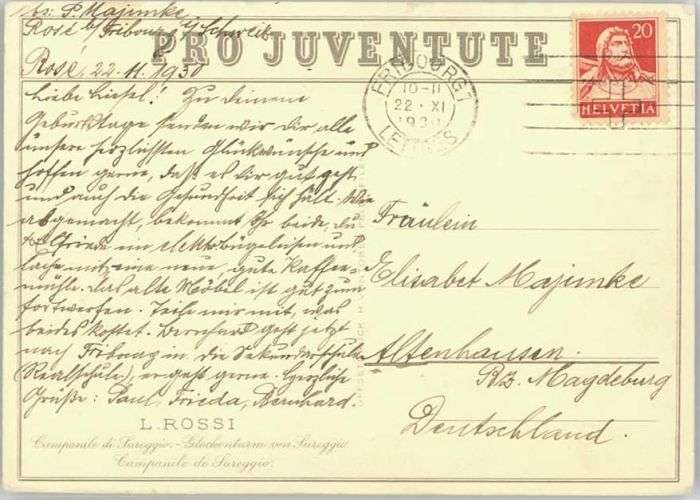 P. Majimke
Rosé b/Fribourg i/Schweiz
PRO JUVENTUTE
Rosé, 22.11.1930
Liebe Liesel! Zu deinem
Geburtstage senden wir Dir alle
unsere herzlichsten Glückwünsche und
hoffen gerne, daß es Dir gut geht
und auch die Gesundheit sich hält. Wie
abgemacht, bekommt Ihr beide, du
Friede ein elektr. bügeleisen und
eine neue, gute Kaffee-
mühle. Das alte Möbel ist gut zum
fortwerfen. Teile mir mit, was
beides kostet. Bernhard geht jetzt
nach Fribourg in die Sekundarschule
(Realschule), er geht gerne. Herzliche
Grüße: Paul, Frieda, Bernhard.
L. ROSSI
Campanile di Sureggio. - Glockenturm von Sureggio
Campanile de Sureggio.
FRIBOURG 1
10-11
22. XI
1930
LETTRES
20
HELVETIA
Fräulein
Elisabet Majimke
Altenhausen.
Bz. Magdeburg
Deutschland.